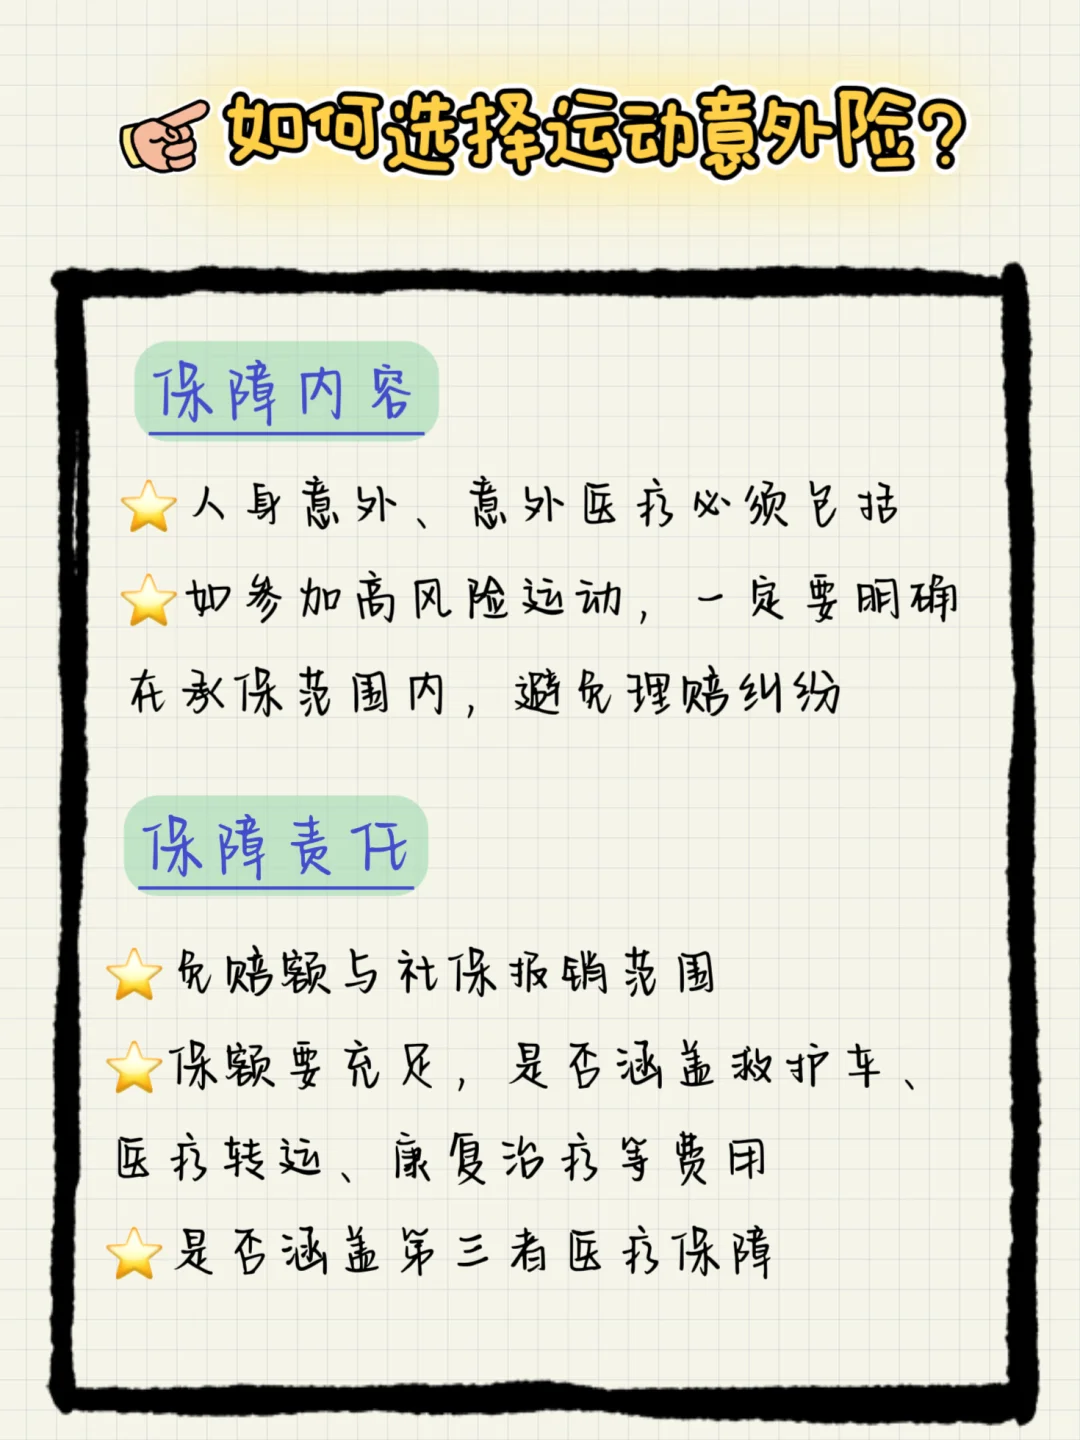 如何选择运动意外险?
保障内容
人身意外、意外医疗必须包括
如参加高风险运动，一定要明确
在承保范围内，避免理赔纠纷
保障责任
免赔额与社保报销范围
保额要充足，是否涵盖救护车、
医疗转运、康复治疗等费用
是否涵盖第三者医疗保障